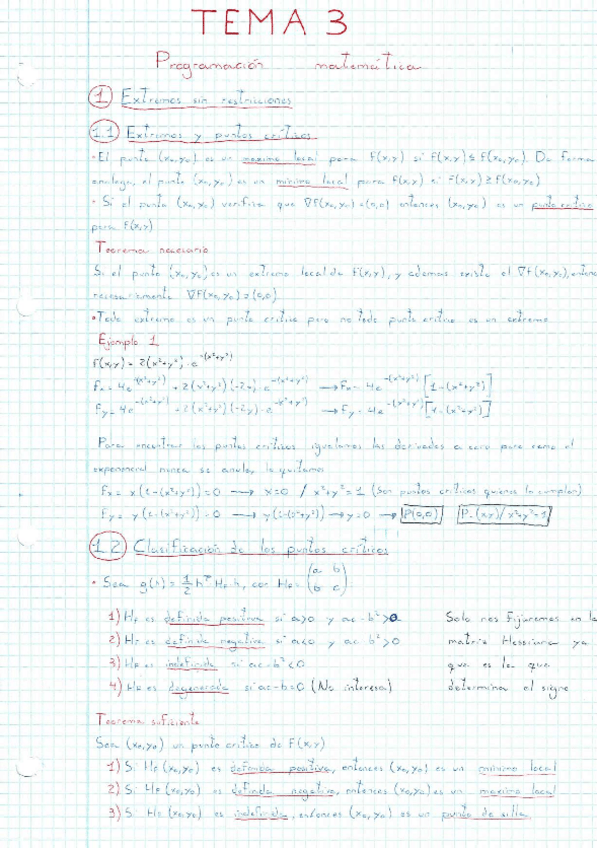 TEMA 3
Programación matemática
1 Extremos sin restricciones
1.1 Extremos y puntos críticos
• El punto (x₀,y₀) es un maximo local para f(x,y) si f(x,y) ≤ f(x₀,y₀). De forma
analoga, el punto (x₀,y₀) es un minimo local para f(x,y) si f(x,y) ≥ f(x₀,y₀)
• Si el punto (x₀,y₀) verifica que ∇f(x₀,y₀)=(0,0) entonces (x₀,y₀) es un punto critico
para f(x,y)
Teorema necesario
Si el punto (x₀,y₀) es un extremo local de f(x,y), y ademas existe el ∇f(x₀,y₀), entonc
necesariamente ∇f(x₀,y₀)=(0,0)
• Todo extremo es un punto critico pero no todo punto critico es un extremo
Ejemplo 1
f(x,y) = 2(x²+y²)·e^-(x²+y²)
Fx = 4e^-(x²+y²) + 2(x²+y²)(-2x)·e^-(x²+y²) → Fx = 4e^-(x²+y²)[1-(x²+y²)]
Fy = 4e^-(x²+y²) + 2(x²+y²)(-2y)·e^-(x²+y²) → Fy = 4e^-(x²+y²)[1-(x²+y²)]
Para encontrar los puntos criticos igualamos las derivadas a cero pero como el
exponencial nunca se anula, lo quitamos
Fx = x(1-(x²+y²))=0 → x=0 / x²+y²=1 (Son puntos criticos quienes lo cumplan)
Fy = y(1-(x²+y²))=0 → y(1-(0²+y²)) → y=0 → P(0,0) P=(x,y)/x²+y²=1
1.2 Clasificación de los puntos críticos
• Sea g(h) = 1/2 hᵀ Hf h, con Hf = (a b
b c)
1) Hf es definida positiva si a>0 y ac-b²>0 Solo nos fijaremos en la
2) Hf es definida negativa si a<0 y ac-b²>0 matriz Hessiana ya
3) Hf es indefinida si ac-b²<0 que es la que
4) Hf es degenerada si ac-b=0 (No interesa) determina el signo
Teorema suficiente
Sea (x₀,y₀) un punto critico de f(x,y)
1) Si Hf(x₀,y₀) es definida positiva, entonces (x₀,y₀) es un minimo local
2) Si Hf(x₀,y₀) es definida negativa, entonces (x₀,y₀) es un maximo local
3) Si Hf(x₀,y₀) es indefinida, entonces (x₀,y₀) es un punto de silla